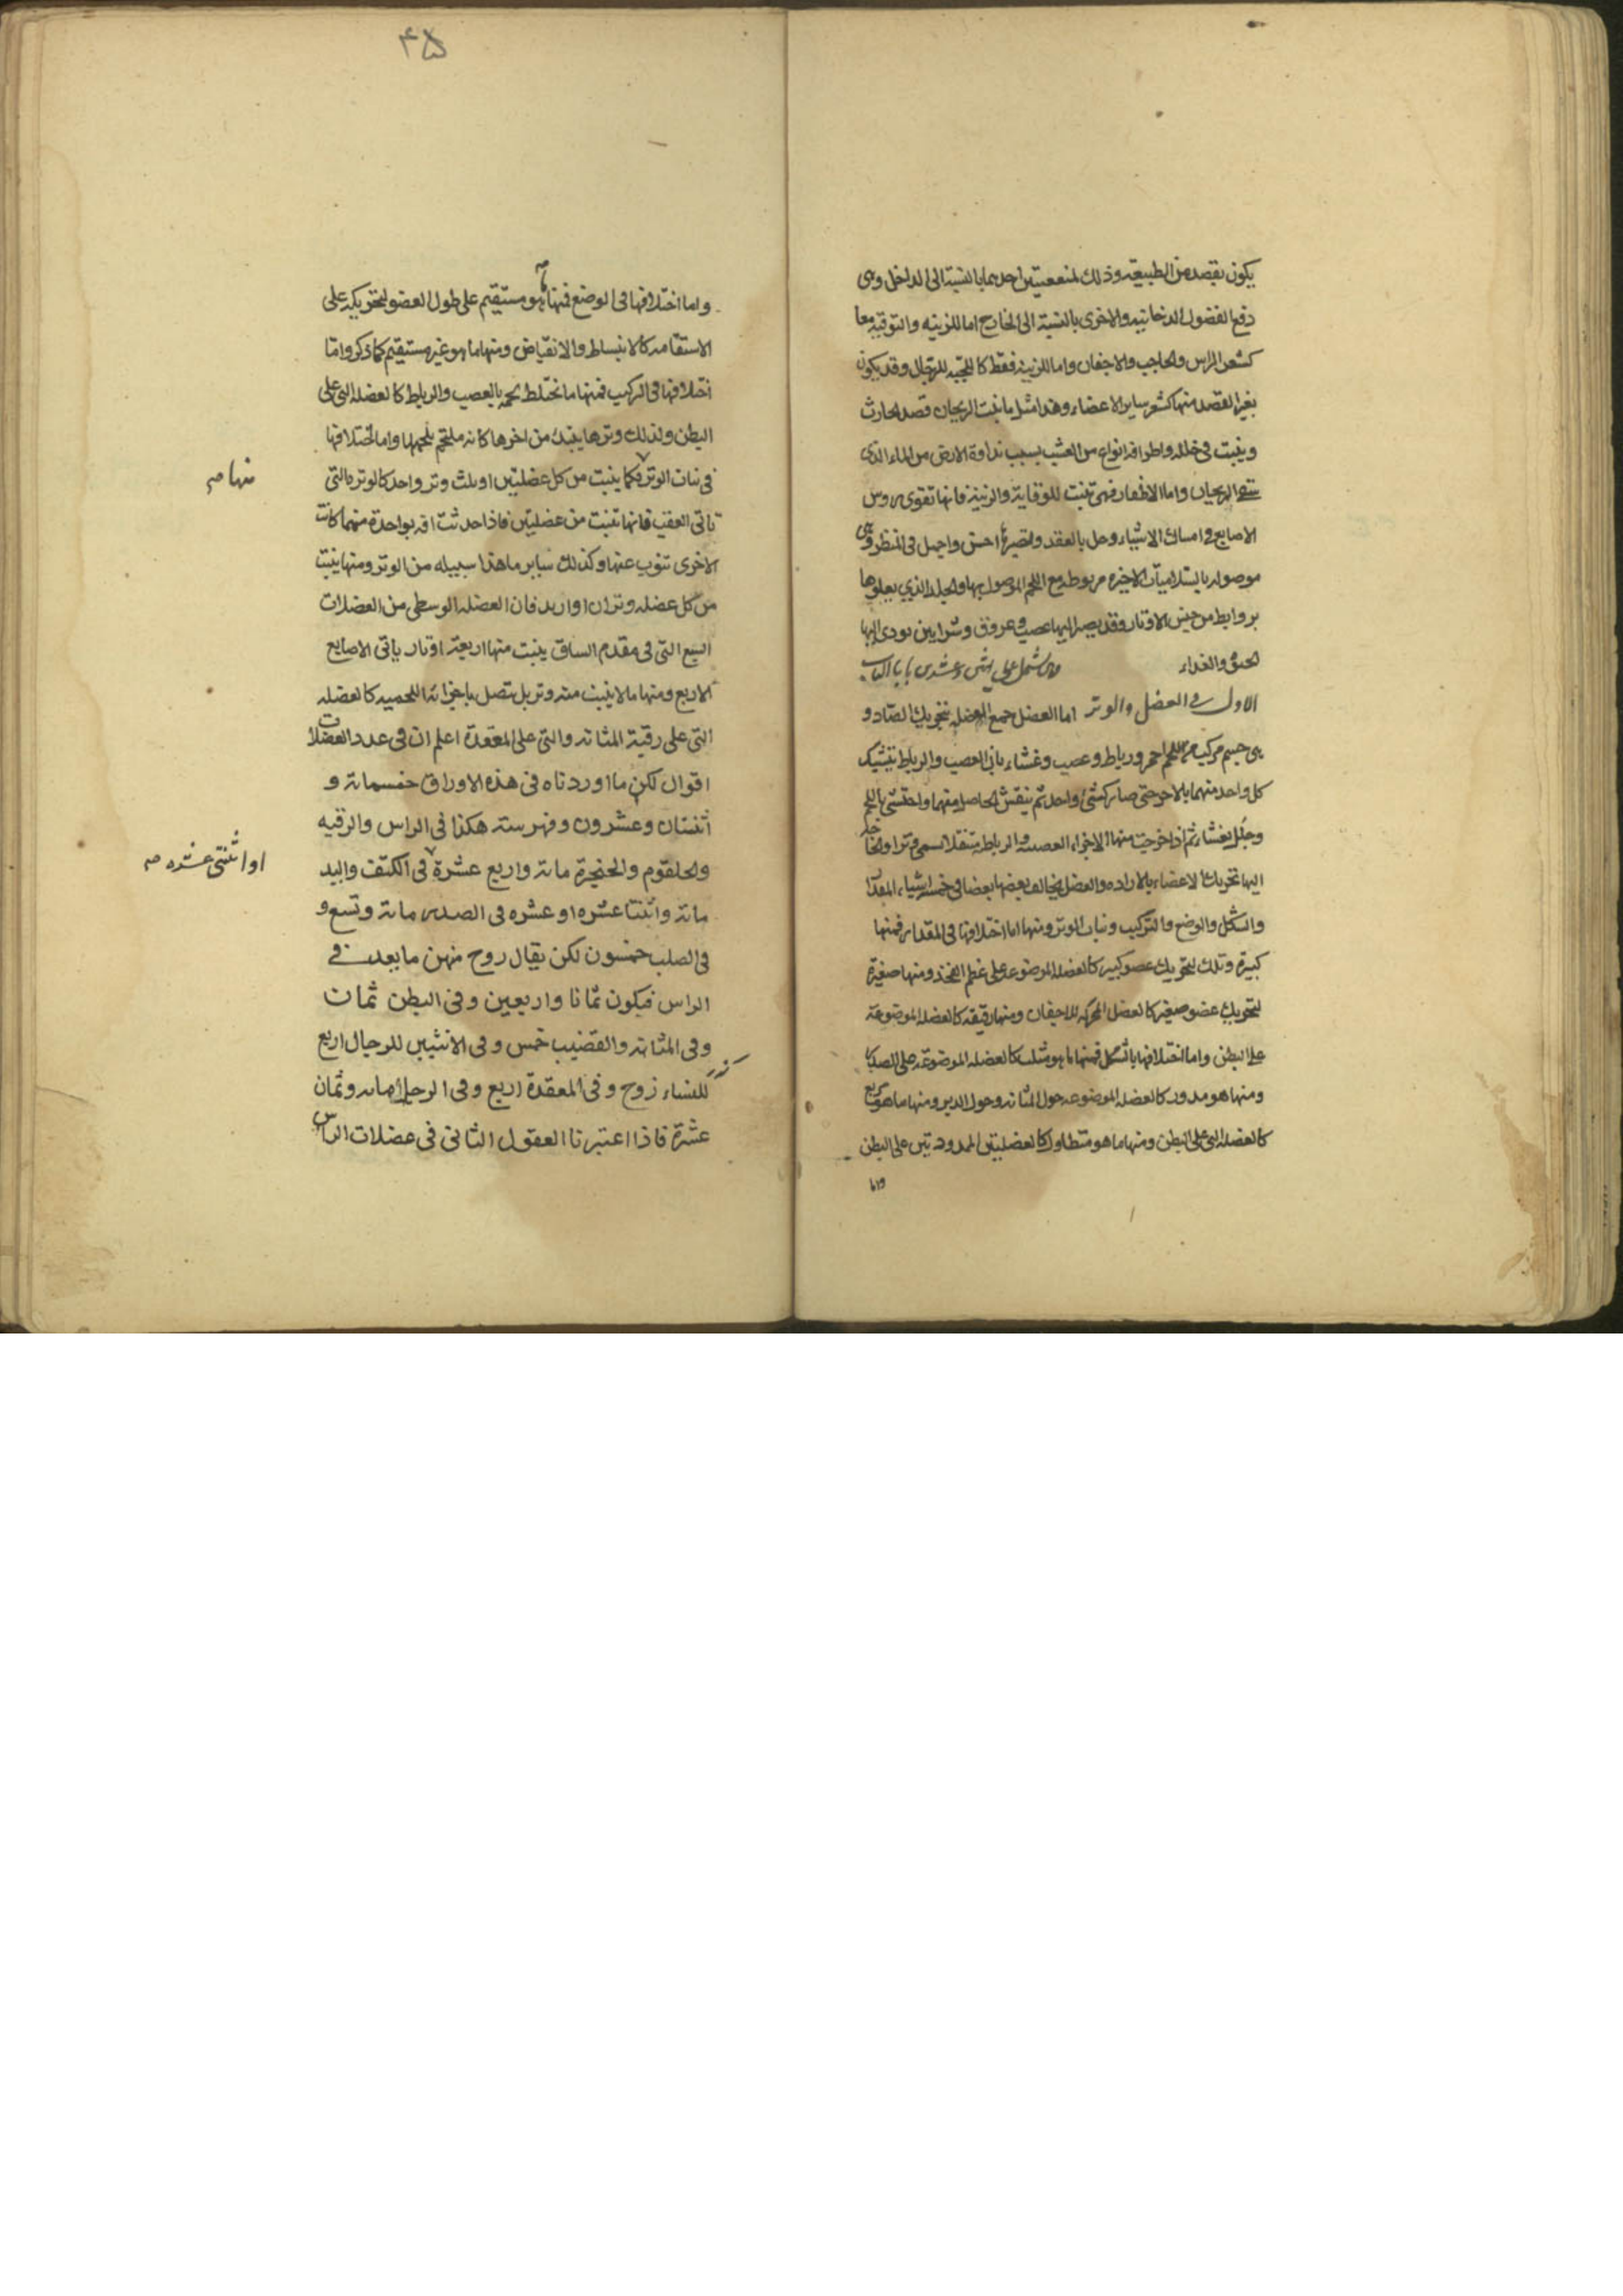 يكون بقصد من الطبيعة وذلك لمنفعتين احديهما بالنسبة الى الداخل وهى
دفع الفضول الدخانيه والاخرى بالنسبة الى الخارج اما للزينه والتوقيه معا
كشعر الراس والحاجب والاجفان واما للزينة فقط كاللحية للرجال وقد يكون
بغير القصد منها كشعر ساير الاعضاء وهذا مثل ما ينبت الريحان قصد الحارث
وينبت فى خلاله واطرافه انواع من العشب بسبب نداوة الارض من الماء الذى
سقى الريحان واما الاظفار فهى تنبت للوقاية والزينة فانها تقوى روس
الاصابع فى امساك الاشياء وحل بالعقد وتصير احسن واجمل فى المنظر وهى
موصوله بالسلاميات الاخيره مربوطه مع اللحم الموصول بها والجلد الذي يعلوها
بروابط من جنس الاوتار وقد يصير اليها عصب وعروق وشرايين يودى اليها
الحس والغداء
الاول فى العضل والوتر اما العضل جمع العضله تحريك الضاد و
هى جسم مركب من اللحم احمر ورباط وعصب وغشاء بان العصب والرباط يتشبك
كل واحد منهما بالاخر حتى صار كشئ واحد ثم ينقش الحاصل منهما واحتشى باللحم
وجلل بغشاء ثم اذا خرجت منها الاجزاء العصبية والرباطية
اليها تحريك الاعضاء بالاراده والعضل يخالف بعضها بعضا فى خمسة اشياء المقدار
والشكل والوضع والتركيب ونبات الوتر ومنها اما اختلافها فى المقدار فمنها
كبيرة وتلك لتحريك عضو كبير كالعضله الموضوعه على عظم الفخذ ومنها صغيرة
لتحريك عضو صغير كالعضل المحركه للاجفان ومنها رقيقه كالعضله الموضوعة
على البطن واما اختلافها بالشكل فمنها ما هو مثلث كالعضله الموضوعه على الصدر
ومنها هو مدور كالعضله الموضوعه حول المثانه وحول الدبر ومنها ما هو مربع
كالعضله التى على البطن ومنها ما هو متطاول كالعضلتين الممدودتين على البطن
واما
۴۵
واما اختلافها فى الوضع فمنها ما هو مستقيم على طول العضو لتحريكه على
الاستقامه كالانبساط والانقباض ومنها ما هو غير مستقيم كما ذكر واما
اختلافها فى التركيب فمنها ما تختلط لحمه بالعصب والرباط كالعضله التى على
البطن ولذلك وترها ينبت من اخرها كانه ملتحم بلحمها واما اختلافها
فى نبات الوتر فكما ينبت من كل عضلتين او ثلث وتر واحد كالوتره التى
تاتى العقب فانها تنبت من عضلتين فاذا حدثت افه بواحدة منهما كانت
الاخرى تنوب عنها وكذلك ساير ما هذا سبيله من الوتر ومنها ينبت
من كل عضله وتران او ازيد فان العضله الوسطى من العضلات
السبع التى فى مقدم الساق ينبت منها اربعة اوتار ياتى الاصابع
الاربع ومنها ما لا ينبت منه وتر بل يتصل باجزائه اللحميه كالعضله
التى على رقبة المثانه والتى على المقعدة اعلم ان فى عدد العضلات
اقوال لكن ما اوردناه فى هذه الاوراق خمسمائة و
اثنتان وعشرون وفهرسته هكذا فى الراس والرقبه
والحلقوم والحنجرة مائة واربع عشرة فى الكتف واليد
مائة واثنتا عشره او عشره فى الصدر مائة وتسع و
فى الصلب خمسون لكن يقال زوج منهن ما يعد فى
الراس فيكون ثمانا واربعين وفى البطن ثمان
وفى المثانه والقضيب خمس وفى الانثيين للرجال اربع
للنساء زوج وفى المقعدة اربع وفى الرجل مائه وثمان
عشرة فاذا اعتبرنا العقول الثانى فى عضلات الراس
منها صح
او اثنتى عشره صح